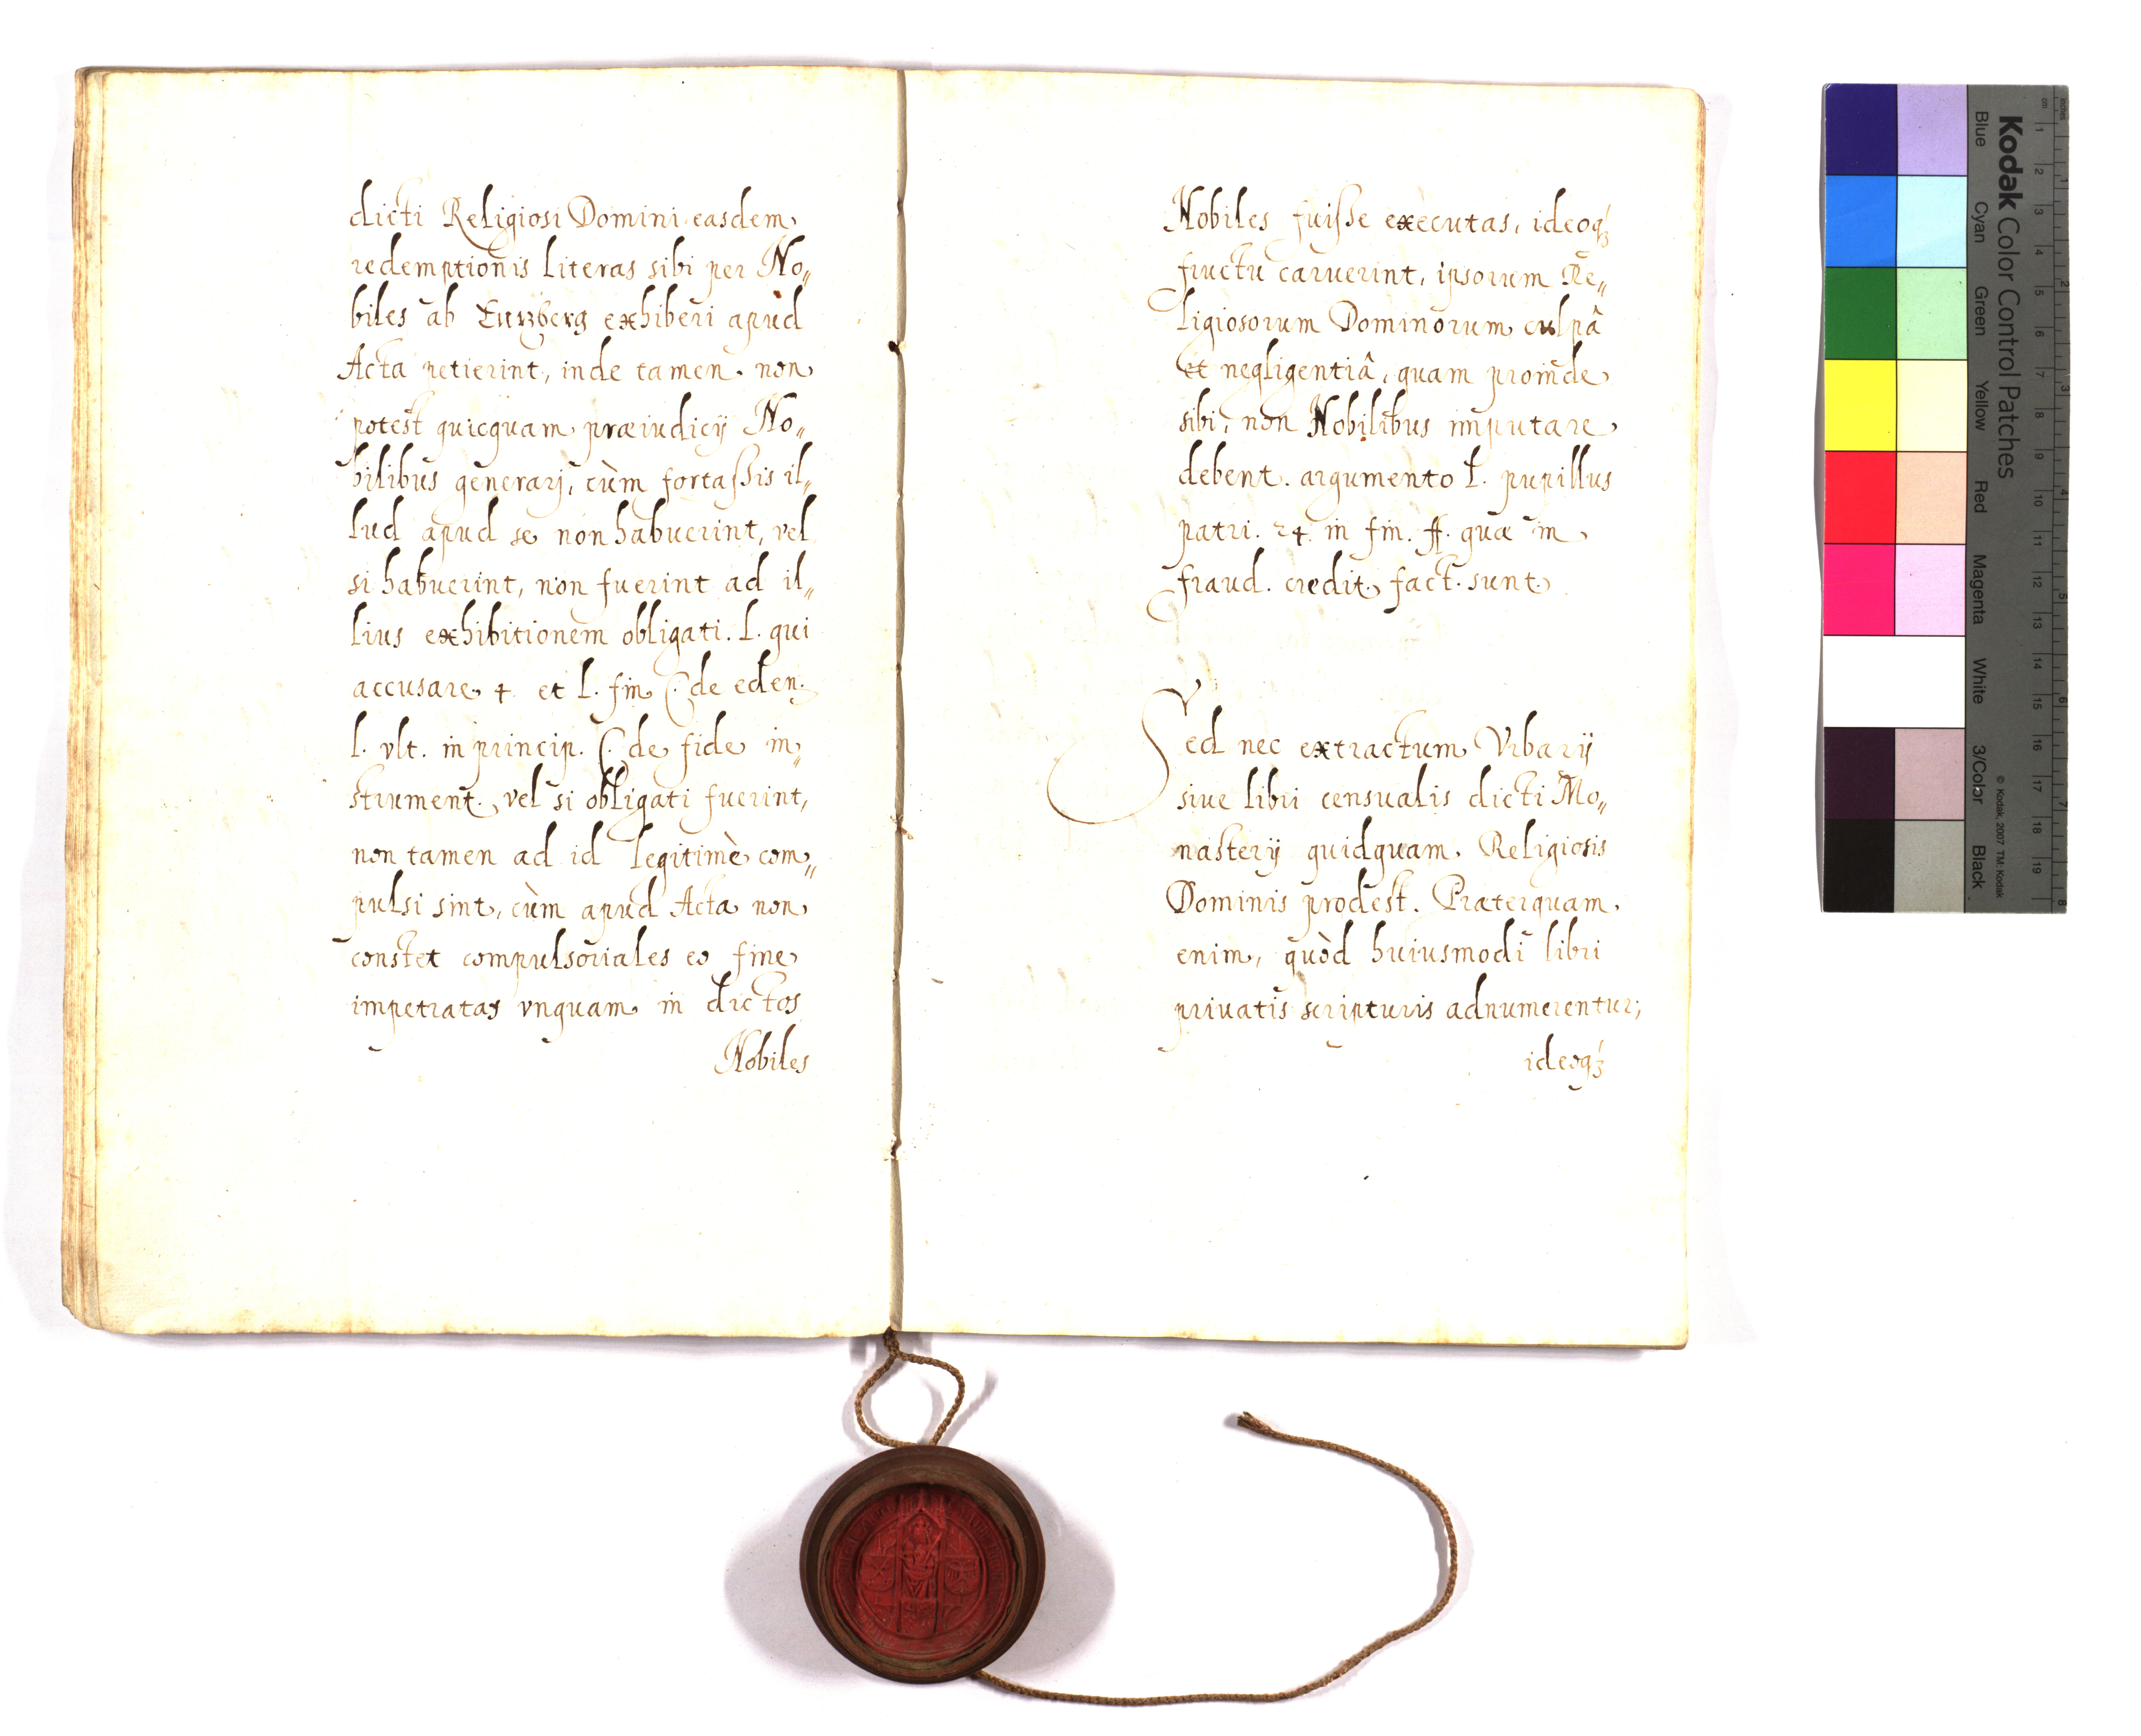 dicti Religiosi Domini easdem
redemptionis literas sibi per No„
biles ab Enzberg exhiberi apud
Acta petierint, inde tamen non
potest quicquam præiudicij No„
bilibus generarj, cùm fortaßis il„
lud apud se non habuerint, vel
si habuerint, non fuerint ad il„
lius exhibitionem obligati. l. qui
accusare 4. et l. fin. C. de eden.
l. vlt. in princip. C. de fide in„
strument. vel si obligati fuerint,
non tamen ad id legitimè com„
pulsi sint, cùm apud Acta non
constet compulsoriales eo fine
impetratas vnquam in dictos
Nobiles
Nobiles fuiſse executas, ideoq́ꝫ
fructu caruerint, ipsorum Re„
ligiosorum Dominorum culpâ
et negligentiâ, quam proinde
sibi, non Nobilibus imputare
debent. argumento l. pupillus
patri. 24. in fin. ff. quæ in
fraud. credit. fact. sunt.
Sed nec extractum Vrbarij
siue libri censualis dicti Mo„
nasterij quidquam Religiosis
Dominis prodest. Præterquam
enim, quòd huiusmodi libri
priuatis scripturis adnumerentur;
ideoq́ꝫ
Kodak Color Control Patches
Blue
Cyan
Green
Yellow
Red
Magenta
White
3/Color
Black
© Kodak, 2007 TM: Kodak
cm
1
2
3
4
5
6
7
8
9
10
11
12
13
14
15
16
17
18
19
inches
1
2
3
4
5
6
7
8